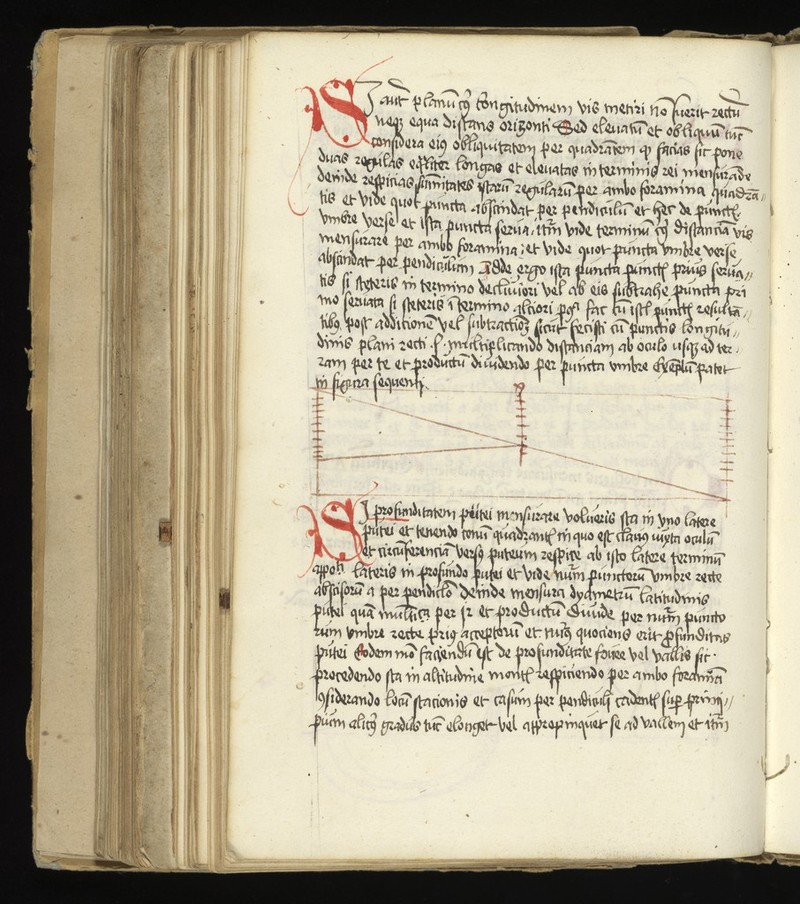 Si aut planu cuius longitudinem vis metiri no fuerit rectu
neqz eque distans orizonti Sed elevatu et obliquu tuc
considera eius obliquitatem per quadrantem qz facias sic pone
duas regulas eqliter longas et elevatas in terminis rei mensurade
deinde respicias sumitates istaru regularu per ambo foramina quadra
tis et vide quot puncta abscindat per pendiculu et hec de punctis
umbre verse et ista puncta serva itm vide terminu cuius distancia vis
mensurare per ambo foramina et vide quot puncta umbre verse
abscindat per pendiculum Adde ergo ista puncta punctis prius serva
tis si steteris in termino decliviori vel ab eis subtrahe puncta pri
mo servata si steteris i termino alciori post fac cu istis punctis resulta
tibus post additione vel subtractione sicut fecisti cu punctis longitu
dinis plani recti s multiplicando distanciam ab oculo usqz ad ter
ram per te et productu dividendo per puncta umbre Exemplu patet
in figura sequenti
Si profunditatem putei mensurare volueris sta in uno latere
putei et tenendo conu quadrantis in quo est clavus iuxta oculu
et circuferenciam versus puteum respice ab isto latere terminu
lateris in profundo putei et vide num punctoru umbre recte
abscisoru a per pendiclo deinde mensura dyametru latitudinis
putei quam multiplica per 12 et productu divide per num puncto
rum umbre recte prius acceptoru et nus quociens erit profunditas
putei Eodem mo faciendu est de profunditate fovee vel vallis sic
procedendo sta in altitudine montis respiciendo per ambo foramia
considerando locu stacionis et casum per pendiculi cadentis sup prin
pium alicuius gradus tuc elonget vel appropinquet se ad vallem et itm